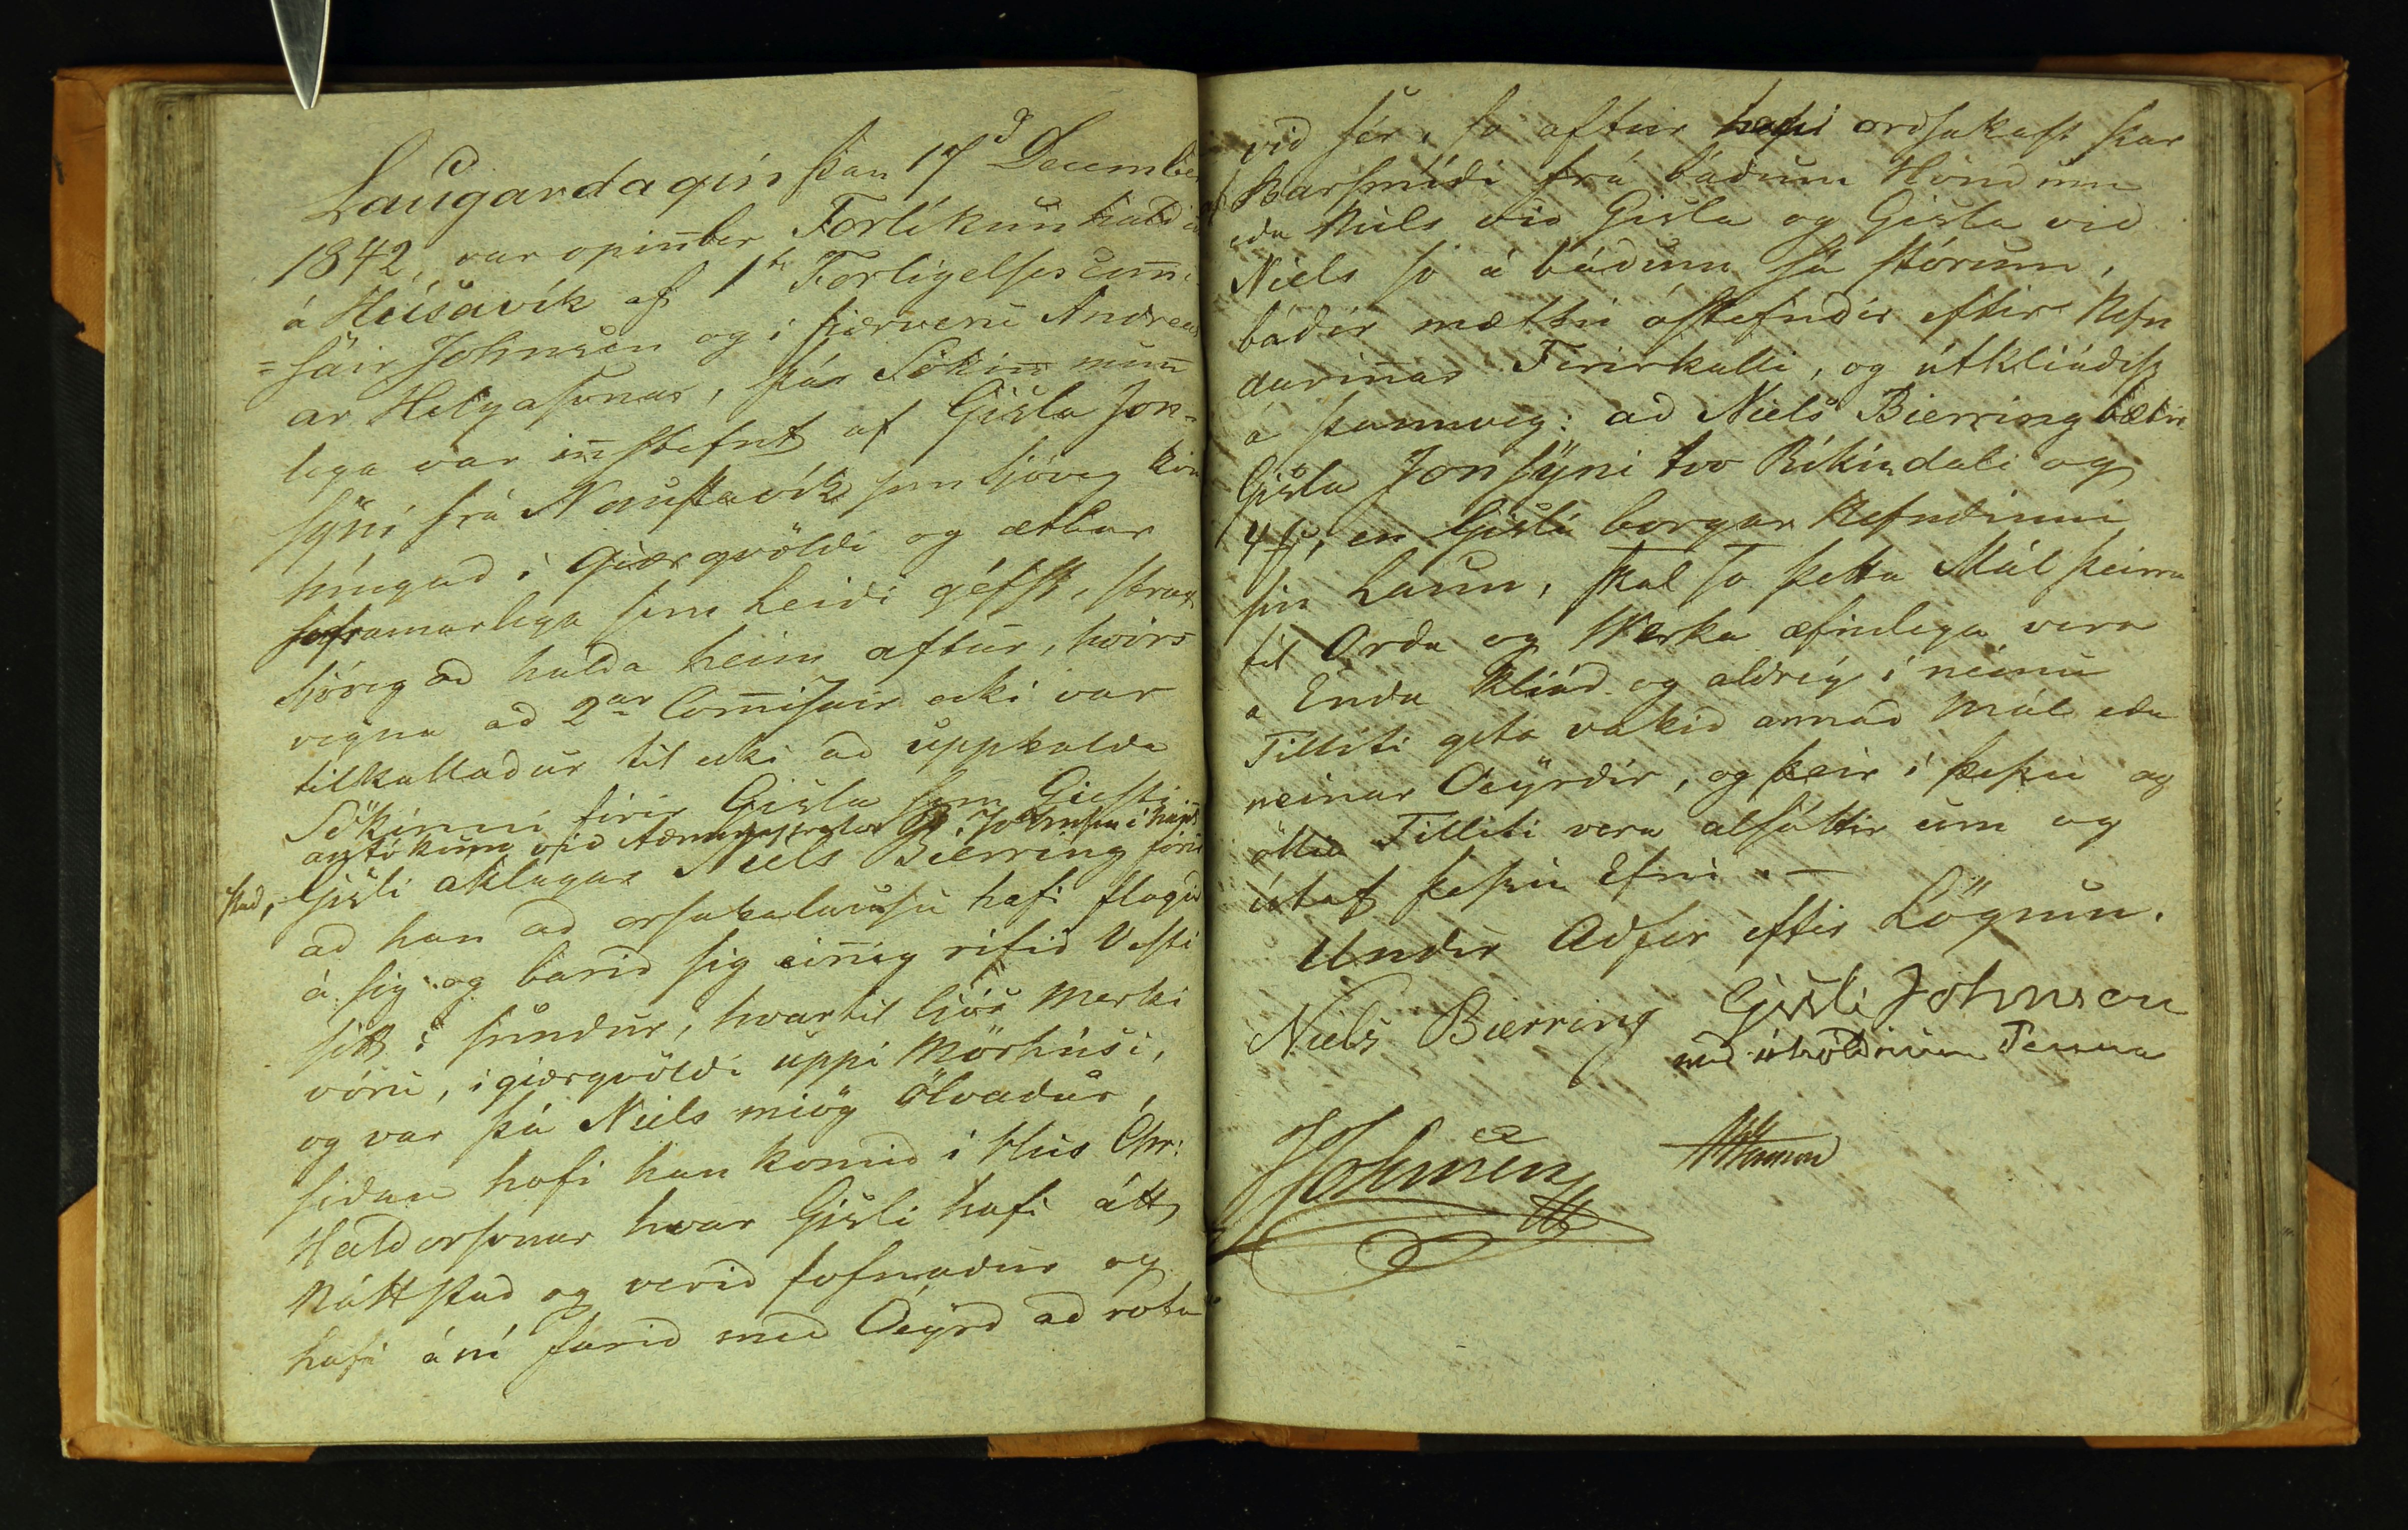 Laugardagin þan 17d December
1842, var opinber Forlikun haldin
á Húsavík af 1te Forligelses Com̄i-
=säir Johnsen og i fiærveru Andreas
ar Helgasonar, þár Sökin mun̄
lega var in̄stefnt af Gisla Jon-
sÿni frá Naustavík sem sjóveg kom
hingad i Giærqvöldi og ætlar
so framarlega sem leidi géfst, strax
sjóveg ad halda heim aftur, hvörs
vegna ad 2ar Com̄isair ecki var
tilkalladur til ecki ad uppholda
Sökinni firir Gisla sem Giesti
Gisli aklagar Niels Bierring firir
ad han ad orsakalausu hafi flogid
á sig og barid sig ein̄ig rifid Vesti
sitt i sundur, hvartil ljós Merki
vóru, i giærqvöldi uppi Mörhúsi,
og var þá Niels miög Ölvadur,
sidan hafi han komid i Hús Chr:
Haldorsonar hvar Gisli hafi átt
Náttstad og verid sofnadur og
hafi á ní farid med Óeyrd ad rota
vid sér, so aftur hafi ordsakast þar
Barsmídi frá bádum Höndum
eda Niels vid Gisla og Gisla vid
Niels so á bádum sá stórum,
bádir mættu óstefndir eftir Nefn
darin̄ar Firirkalli, og útkliádist
á þannveg: ad Niels Bierring bætir
Gisla Jonsÿni tvo Rikisdali og
4 sz, en Gisli borgar Nefndinni
sin Laun, skal so þetta Mál þeirra
til Orda og Werka æfinlega vera
á Enda kliád og aldrey i neinu
Tilliti geta vakid annad Mál eda
neinar Óeÿrdir, og þeir i þessu og
öllu Tilliti vera alsáttir um og
útaf þessu Efni. —
Undir Adfer eftir Lögum.
Niels Bierring Gisli Johnson
med áholdnum Penna
Johnsen